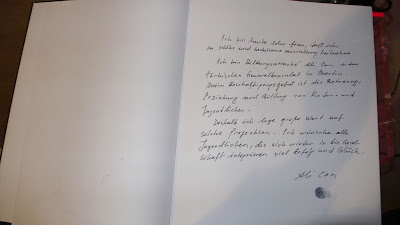 Ich bin heute sehr froh, daß ich
zu solche und bedeutsame Ausstellung teilnehme
Ich bin Bildungsattaché Ali Can in der
türkischen Generalkonsulat in
Mein Beschäftigungsgebiet ist die Betreuung,
Erziehung und Bildung von Kinder- und
Jugendlichen.
Deshalb ich lege große Wert auf
solche Projekten. Ich wünsche alle
Jugendlichen, die sich wieder in die Gesell-
schaft integrieren viel Erfolg und Glück.
Ali Can